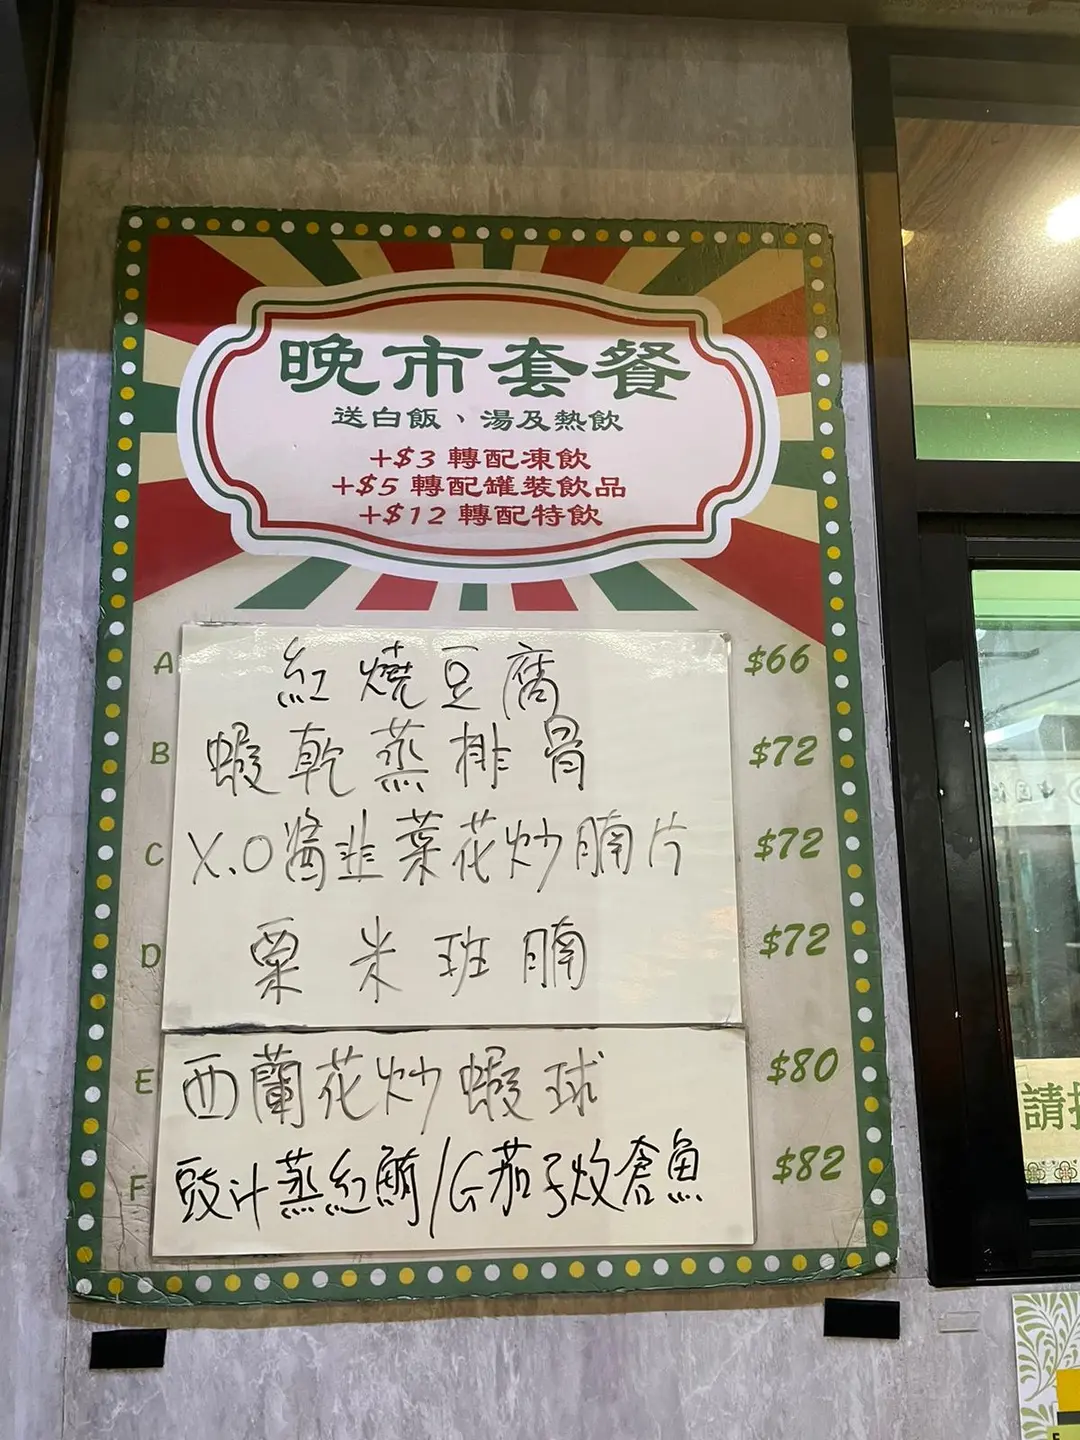 晚市套餐
送白飯、湯及熱飲
+$3 轉配凍飲
+$5 轉配罐裝飲品
+$12 轉配特飲
A 紅燒豆腐 $66
B 蝦乾蒸排骨 $72
C X.O醬韭菜花炒腩片 $72
D 粟米班腩 $72
E 西蘭花炒蝦球 $80
F 豉汁蒸紅鮪/G茄子炆倉魚 $82
請